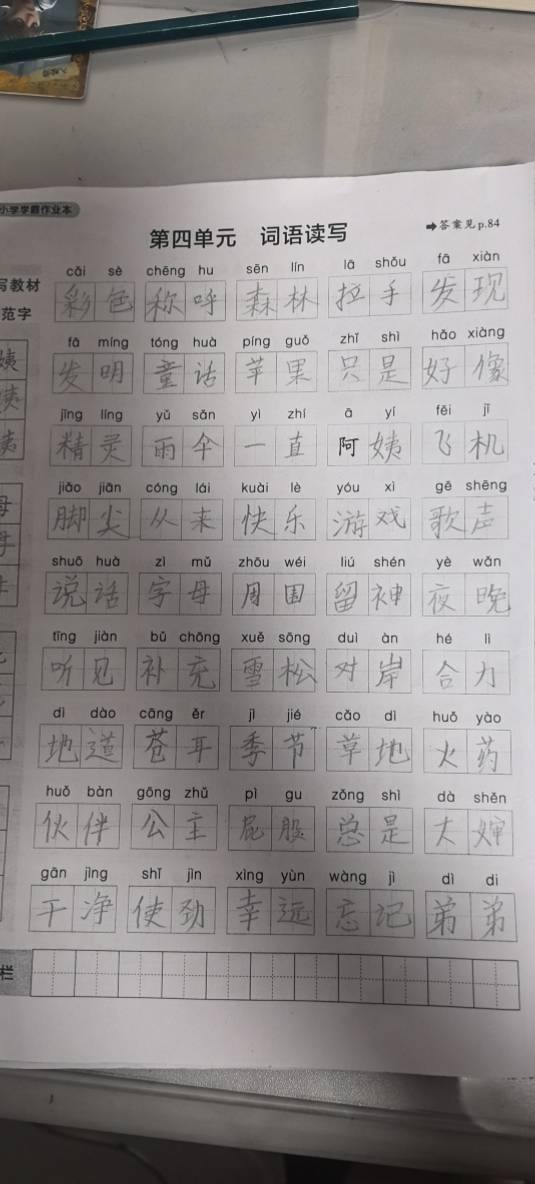 小学学霸作业本
第四单元 词语读写
➡答案见 p.84
写教材
范字
cǎi sè chēng hu sēn lín lā shǒu fā xiàn
彩色 称呼 森林 拉手 发现
fā míng tóng huà píng guǒ zhǐ shì hǎo xiàng
发明 童话 苹果 只是 好像
jīng líng yǔ sǎn yì zhí ā yí fēi jī
精灵 雨伞 一直 阿姨 飞机
jiǎo jiān cóng lái kuài lè yóu xì gē shēng
脚尖 从来 快乐 游戏 歌声
shuō huà zì mǔ zhōu wéi liú shén yè wǎn
说话 字母 周围 留神 夜晚
tīng jiàn bǔ chōng xuě sōng duì àn hé lì
听见 补充 雪松 对岸 合力
dì dào cāng ěr jì jié cǎo dì huǒ yào
地道 苍耳 季节 草地 火药
huǒ bàn gōng zhǔ pì gu zǒng shì dà shěn
伙伴 公主 屁股 总是 大婶
gān jìng shǐ jìn xìng yùn wàng jì dì di
干净 使劲 幸远 忘记 弟弟
栏